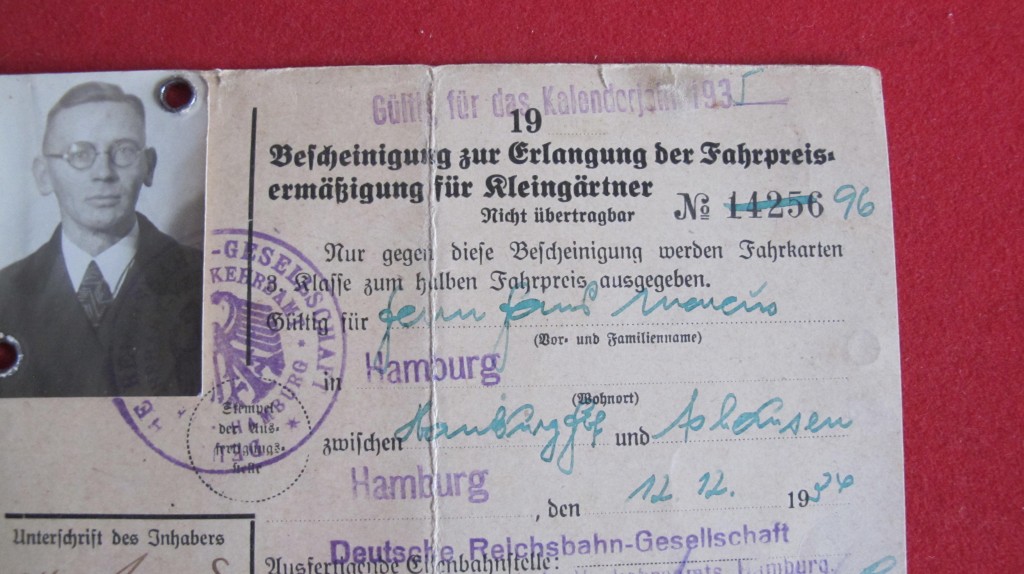 Gültig für das Kalenderjahr 1935
19
Bescheinigung zur Erlangung der Fahrpreis-
ermäßigung für Kleingärtner
Nicht übertragbar
№ 14256 96
Nur gegen diese Bescheinigung werden Fahrkarten
3. Klasse zum halben Fahrpreis ausgegeben.
Gültig für Herrn Hans Marcus
(Vor- und Familienname)
in Hamburg
(Wohnort)
zwischen Hamburg und
Hamburg, den 12. 12. 1934
Deutsche Reichsbahn-Gesellschaft
Ausfertigende Eisenbahnstelle:
Hamburg.
-GESELLSCHAFT
HAMBURG
Stempel
der Aus-
fertigungs-
stelle
Unterschrift des Inhabers